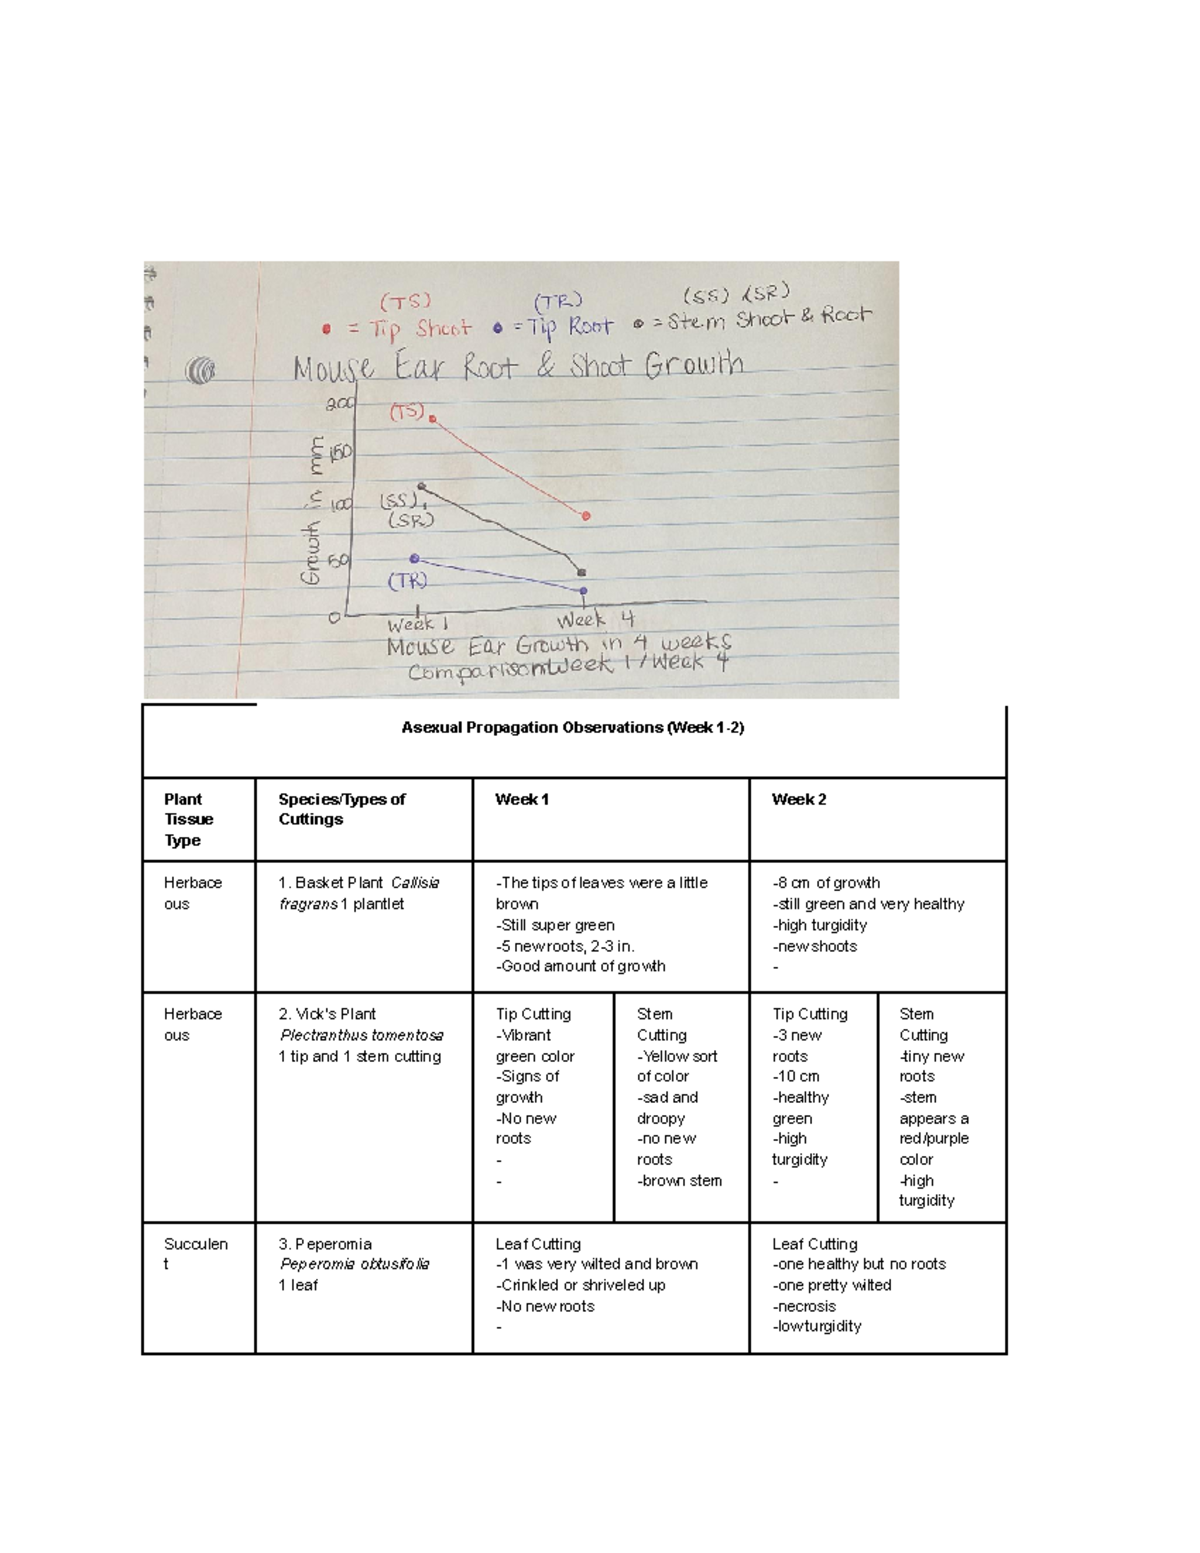 (TS) (TR) (SS) (SR)
= Tip Shoot = Tip Root = Stem Shoot & Root
Mouse Ear Root & Shoot Growth
200
(TS)
150
100
(SS),
(SR)
50
(TR)
0
Growth in mm
Week 1 Week 4
Mouse Ear Growth in 4 weeks
Comparison Week 1 / Week 4
Asexual Propagation Observations (Week 1-2)
Plant
Tissue
Type
Species/Types of
Cuttings
Week 1
Week 2
Herbace
ous
1. Basket Plant Callisia
fragrans 1 plantlet
-The tips of leaves were a little
brown
-Still super green
-5 new roots, 2-3 in.
-Good amount of growth
-8 cm of growth
-still green and very healthy
-high turgidity
-new shoots
-
Herbace
ous
2. Vick's Plant
Plectranthus tomentosa
1 tip and 1 stem cutting
Tip Cutting
-Vibrant
green color
-Signs of
growth
-No new
roots
-
-
Stem
Cutting
-Yellow sort
of color
-sad and
droopy
-no new
roots
-brown stem
Tip Cutting
-3 new
roots
-10 cm
-healthy
green
-high
turgidity
-
Stem
Cutting
-tiny new
roots
-stem
appears a
red/purple
color
-high
turgidity
Succulen
t
3. Peperomia
Peperomia obtusifolia
1 leaf
Leaf Cutting
-1 was very wilted and brown
-Crinkled or shriveled up
-No new roots
-
Leaf Cutting
-one healthy but no roots
-one pretty wilted
-necrosis
-low turgidity